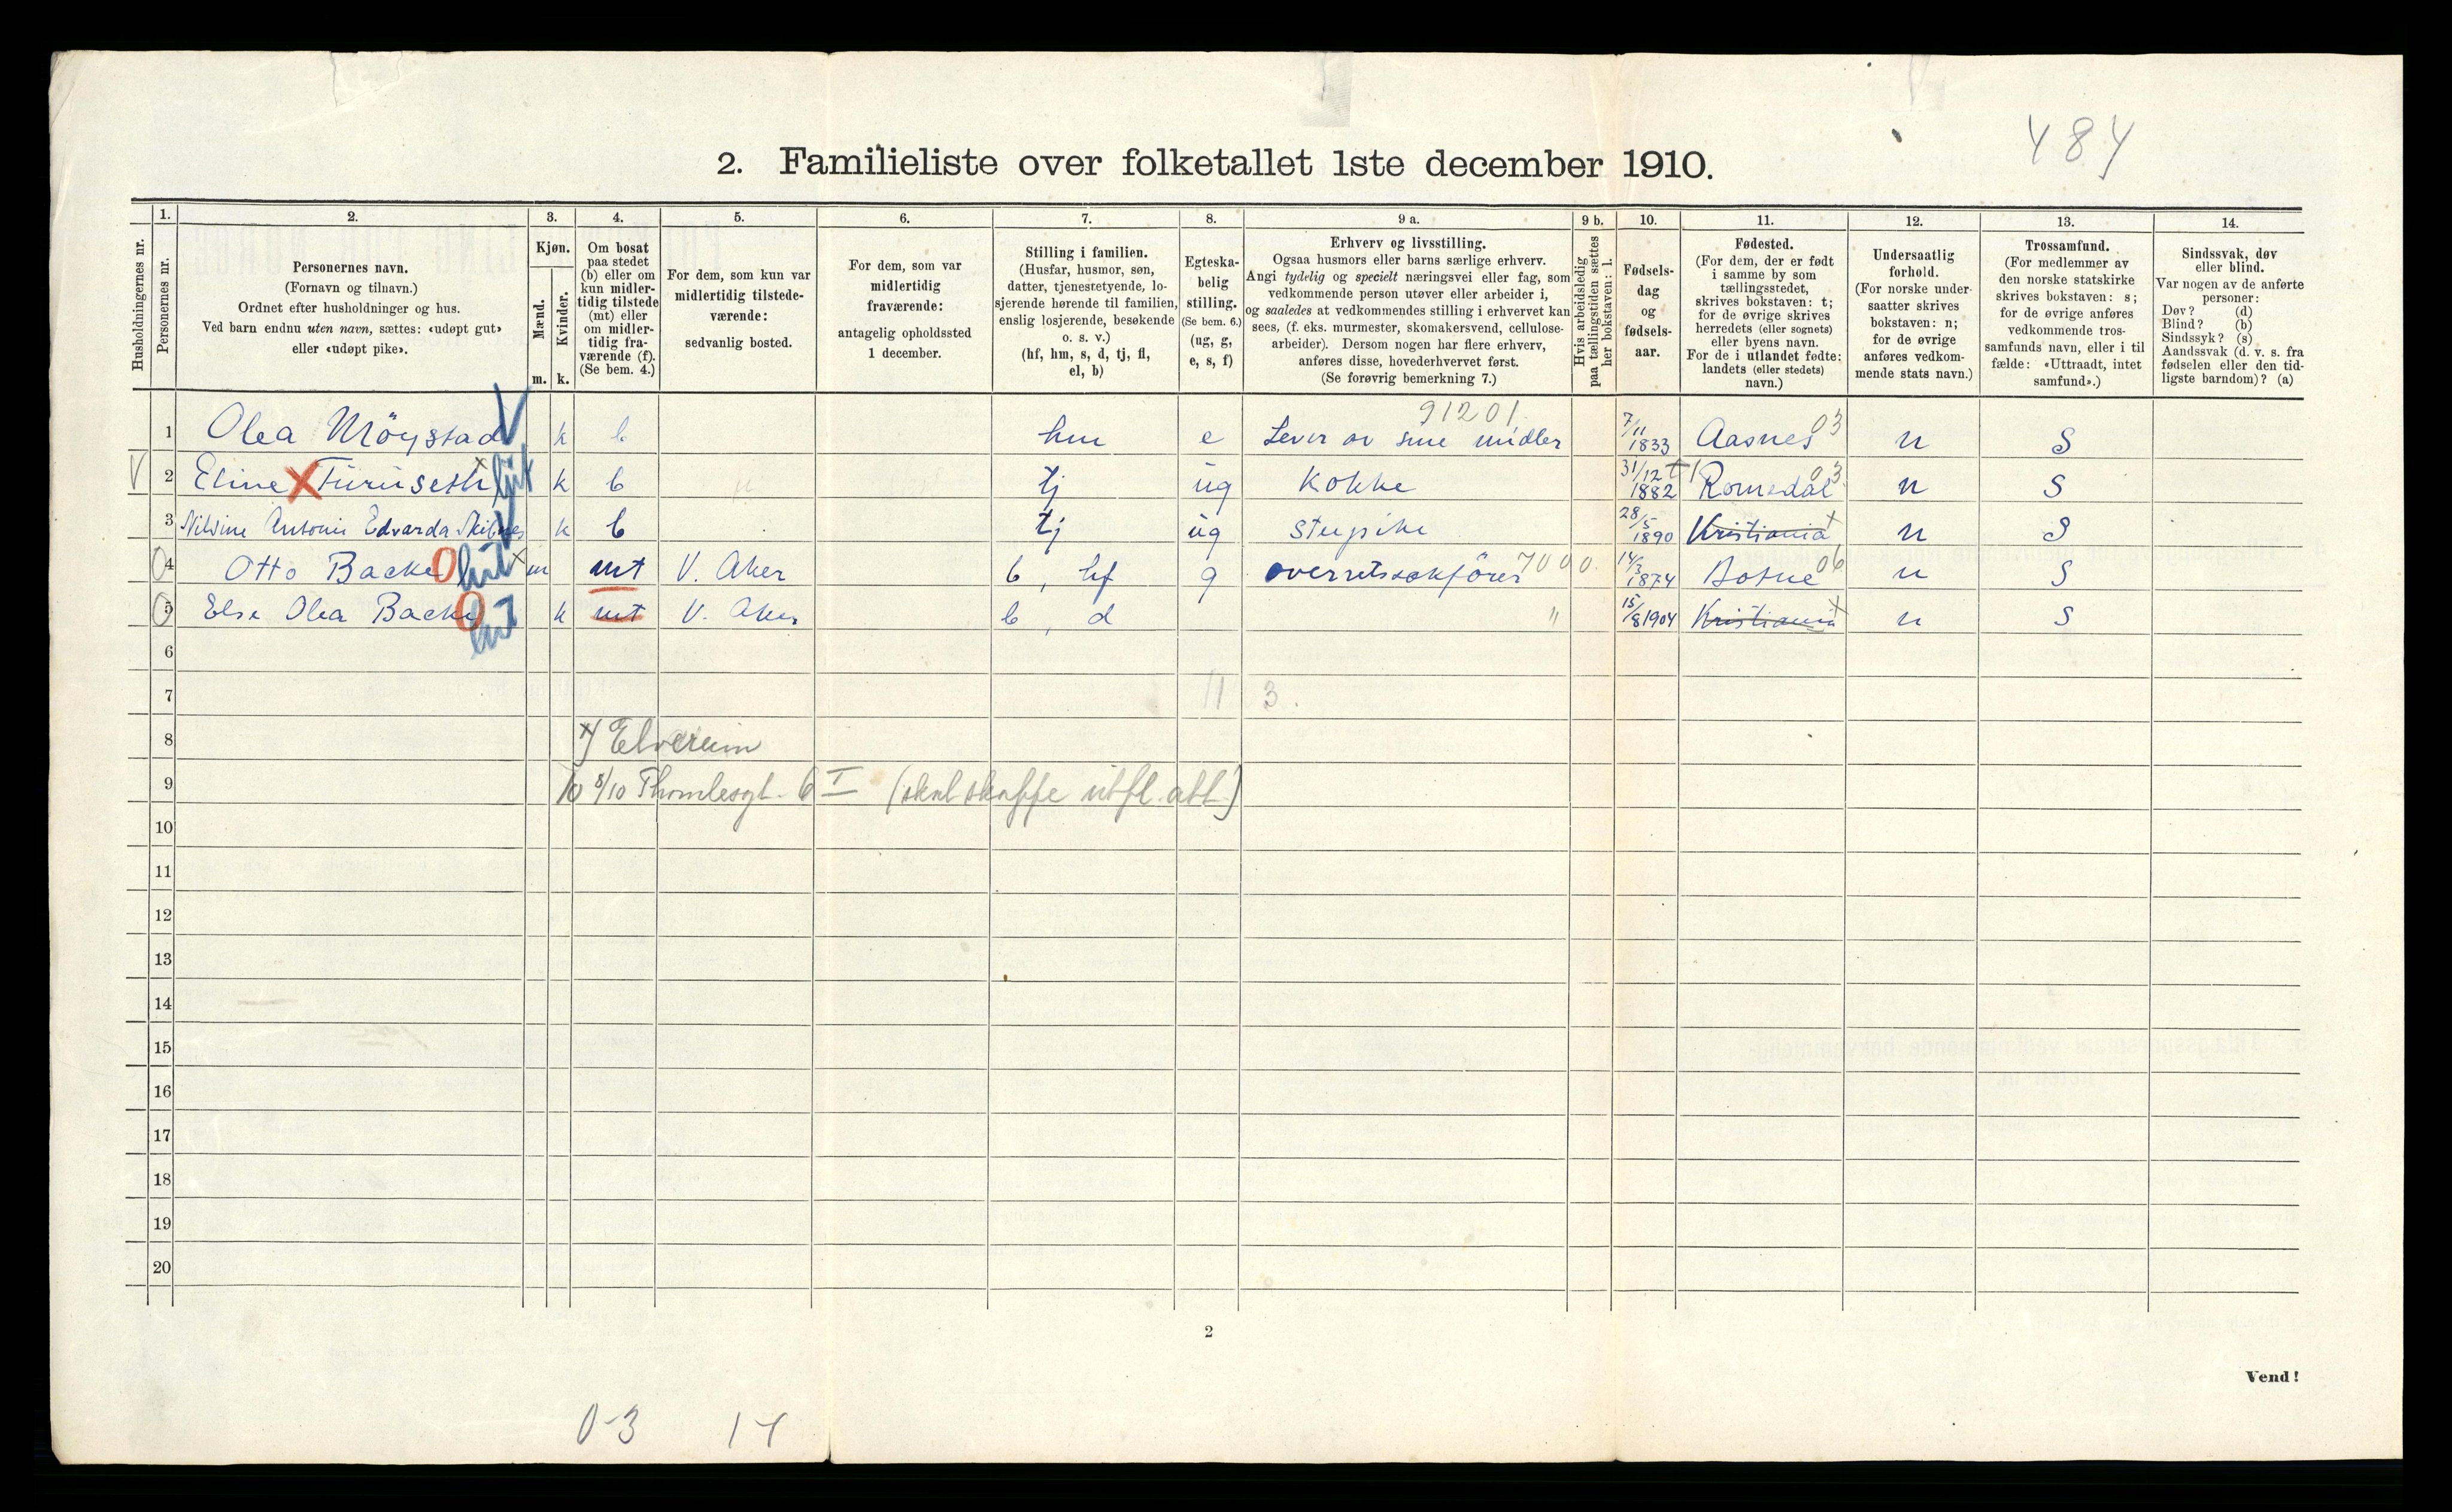 484
2. Familieliste over folketallet 1ste december 1910.
1. 2. 3. 4. 5. 6. 7. 8. 9 a. 9 b. 10. 11. 12. 13. 14.
Husholdningernes nr.
Personernes nr.
Personernes navn.
(Fornavn og tilnavn.)
Ordnet efter husholdninger og hus.
Ved barn endnu uten navn, sættes: «udøpt gut»
eller «udøpt pike».
Kjøn.
Mænd.
Kvinder.
m. k.
Om bosat
paa stedet
(b) eller om
kun midler-
tidig tilstede
(mt) eller
om midler-
tidig fra-
værende (f).
(Se bem. 4.)
For dem, som kun var
midlertidig tilstede-
værende:
sedvanlig bosted.
For dem, som var
midlertidig
fraværende:
antagelig opholdssted
1 december.
Stilling i familien.
(Husfar, husmor, søn,
datter, tjenestetyende, lo-
sjerende hørende til familien,
enslig losjerende, besøkende
o. s. v.)
(hf, hm, s, d, tj, fl,
el, b)
Egteska-
belig
stilling.
(Se bem. 6.)
(ug, g,
e, s, f)
Erhverv og livsstilling.
Ogsaa husmors eller barns særlige erhverv.
Angi tydelig og specielt næringsvei eller fag, som
vedkommende person utøver eller arbeider i,
og saaledes at vedkommendes stilling i erhvervet kan
sees, (f. eks. murmester, skomakersvend, cellulose-
arbeider). Dersom nogen har flere erhverv,
anføres disse, hovederhvervet først.
(Se forøvrig bemerkning 7.)
Hvis arbeidsledig
paa tællingstiden sættes
her bokstaven: l.
Fødsels-
dag
og
fødsels-
aar.
Fødested.
(For dem, der er født
i samme by som
tællingsstedet,
skrives bokstaven: t;
for de øvrige skrives
herredets (eller sognets)
eller byens navn.
For de i utlandet fødte:
landets (eller stedets)
navn.)
Undersaatlig
forhold.
(For norske under-
saatter skrives
bokstaven: n;
for de øvrige
anføres vedkom-
mende stats navn.)
Trossamfund.
(For medlemmer av
den norske statskirke
skrives bokstaven: s;
for de øvrige anføres
vedkommende tros-
samfunds navn, eller i til
fælde: «Uttraadt, intet
samfund».)
Sindssvak, døv
eller blind.
Var nogen av de anførte
personer:
Døv? (d)
Blind? (b)
Sindssyk? (s)
Aandssvak (d. v. s. fra
fødselen eller den tid-
ligste barndom)? (a)
91201.
1 Olea Möystad k b hm e Lever av sine midler 7/11 1833 Aasnes 03 n S
2 Eline X Furuseth k b tj ug Kokke 31/12 1882 Romedal 03 n S
3 Antonie Edvarda k b tj ug Stuepike 28/5 1890 Kristiania n S
4 Otto Backe m mt V. Aker b, hf g overretssakfører 7000. 14/3 1874 Botne 06 n S
5 Else Olea Backe k mt V. Aker b, d " 15/8 1904 Kristiania n S
6
7
3.
8 x) Elverum
9 8/10 Thomlesgt. 6 I (skal skaffe utfl. att.)
10
11
12
13
14
15
16
17
18
19
20
2
Vend!
0-3 14